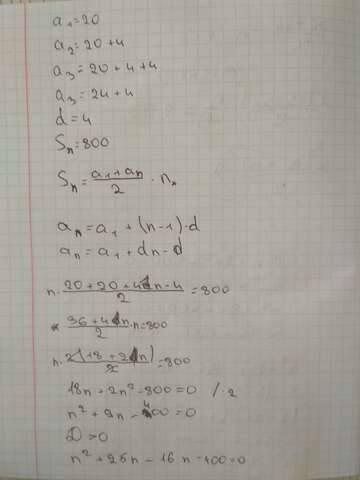 a₁=20
a₂=20+4
a₃=20+4+4
a₃=24+4
d=4
Sₙ=800
Sₙ=(a₁+aₙ)/2 · n.
aₙ=a₁+(n-1)·d
aₙ=a₁+dn-d
n·(20+20+4n-4)/2=800
(36+4n)/2·n=800
n·2(18+2n)/2=800
18n+2n²-800=0 /·2
n²+9n-400=0
D>0
n²+25n-16n-400=0